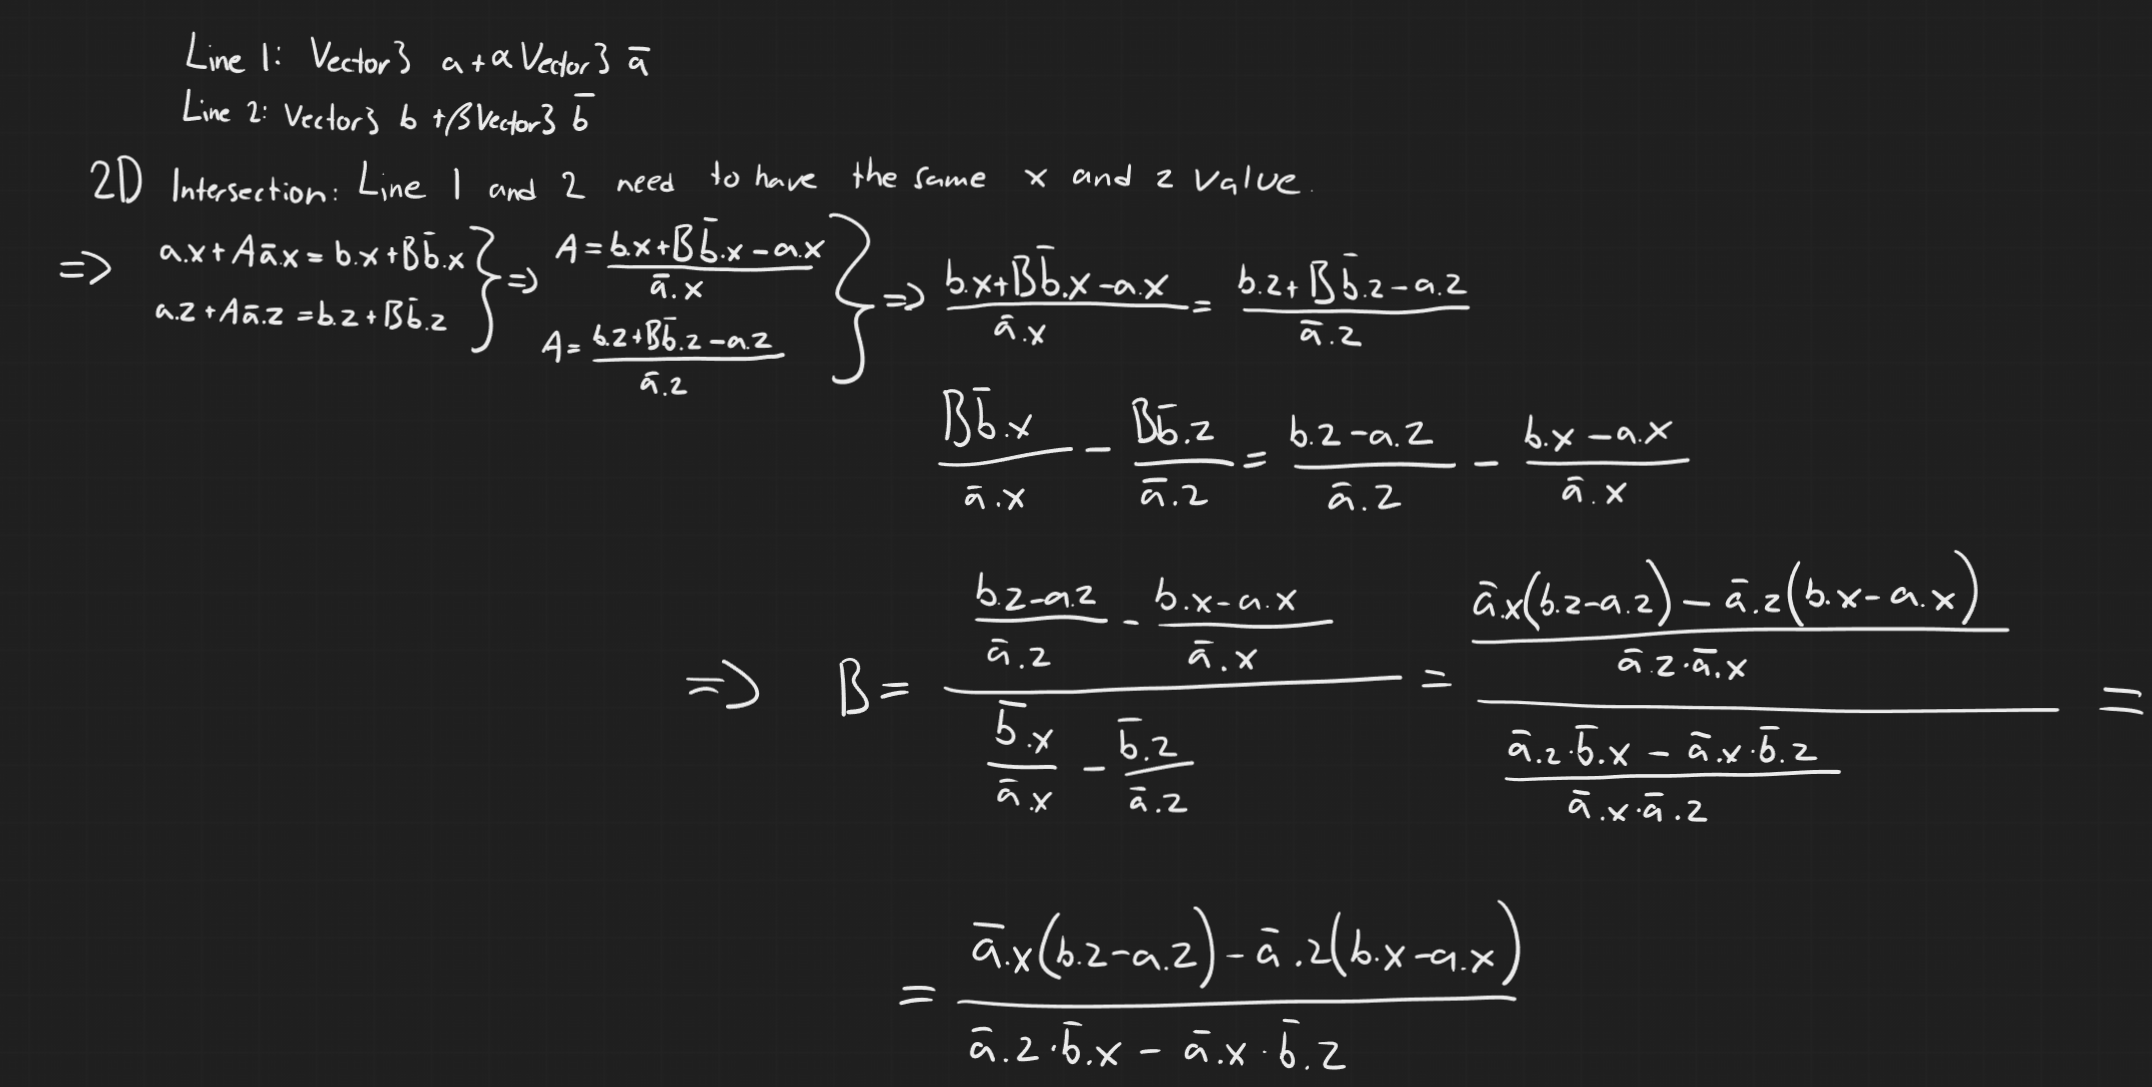 Line 1: Vector3 a + α Vector3 ā
Line 2: Vector3 b + β Vector3 b̄
2D Intersection: Line 1 and 2 need to have the same x and z value.
=> a.x + A ā.x = b.x + B b̄.x } => A = (b.x + B b̄.x - a.x) / ā.x } => (b.x + B b̄.x - a.x) / ā.x = (b.z + B b̄.z - a.z) / ā.z
a.z + A ā.z = b.z + B b̄.z
A = (b.z + B b̄.z - a.z) / ā.z
B b̄.x / ā.x - B b̄.z / ā.z = (b.z - a.z) / ā.z - (b.x - a.x) / ā.x
=> B = ((b.z - a.z) / ā.z - (b.x - a.x) / ā.x) / (b̄.x / ā.x - b̄.z / ā.z) = ((ā.x(b.z - a.z) - ā.z(b.x - a.x)) / (ā.z · ā.x)) / ((ā.z · b̄.x - ā.x · b̄.z) / (ā.x · ā.z)) =
= (ā.x(b.z - a.z) - ā.z(b.x - a.x)) / (ā.z · b̄.x - ā.x · b̄.z)